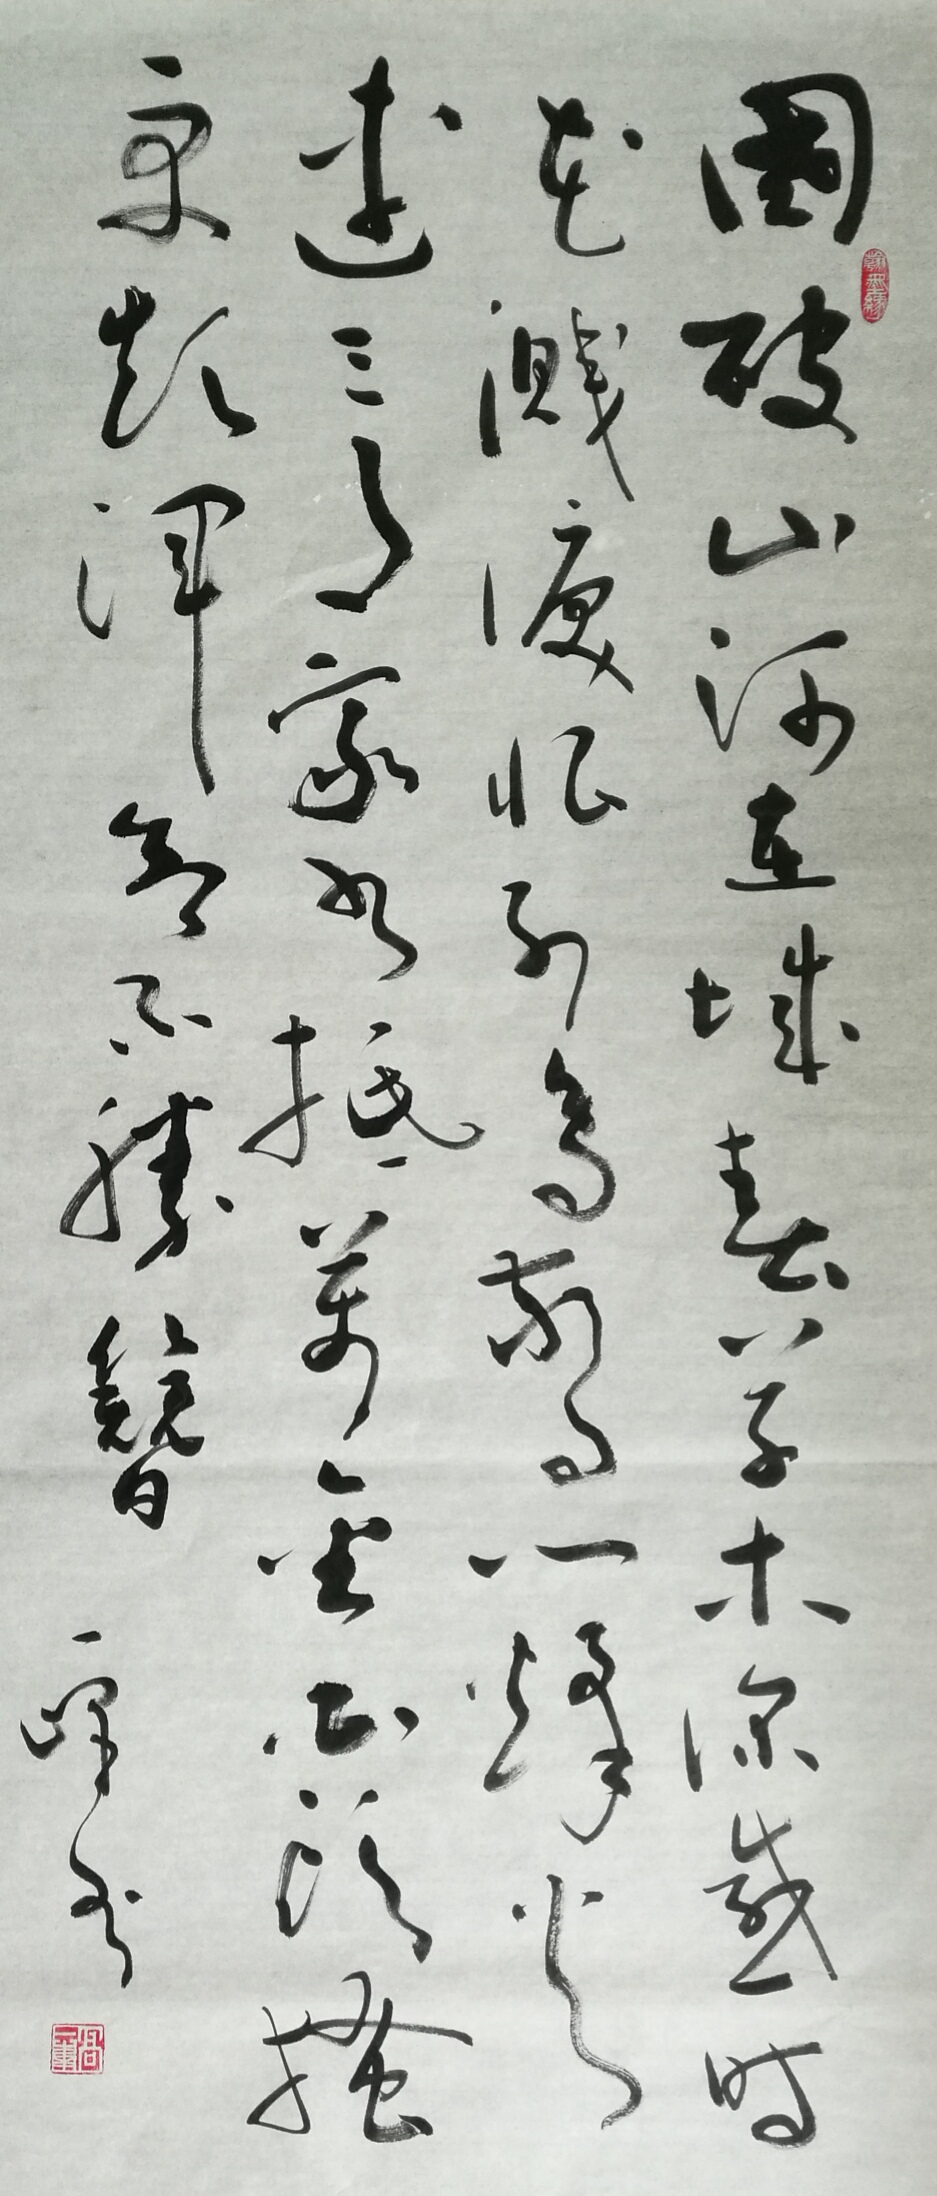 國破山河在城春草木深感時
花濺淚恨別鳥驚心烽火
連三月家書抵萬金白頭搔
更短渾欲不勝簪
一峰書
翰墨緣